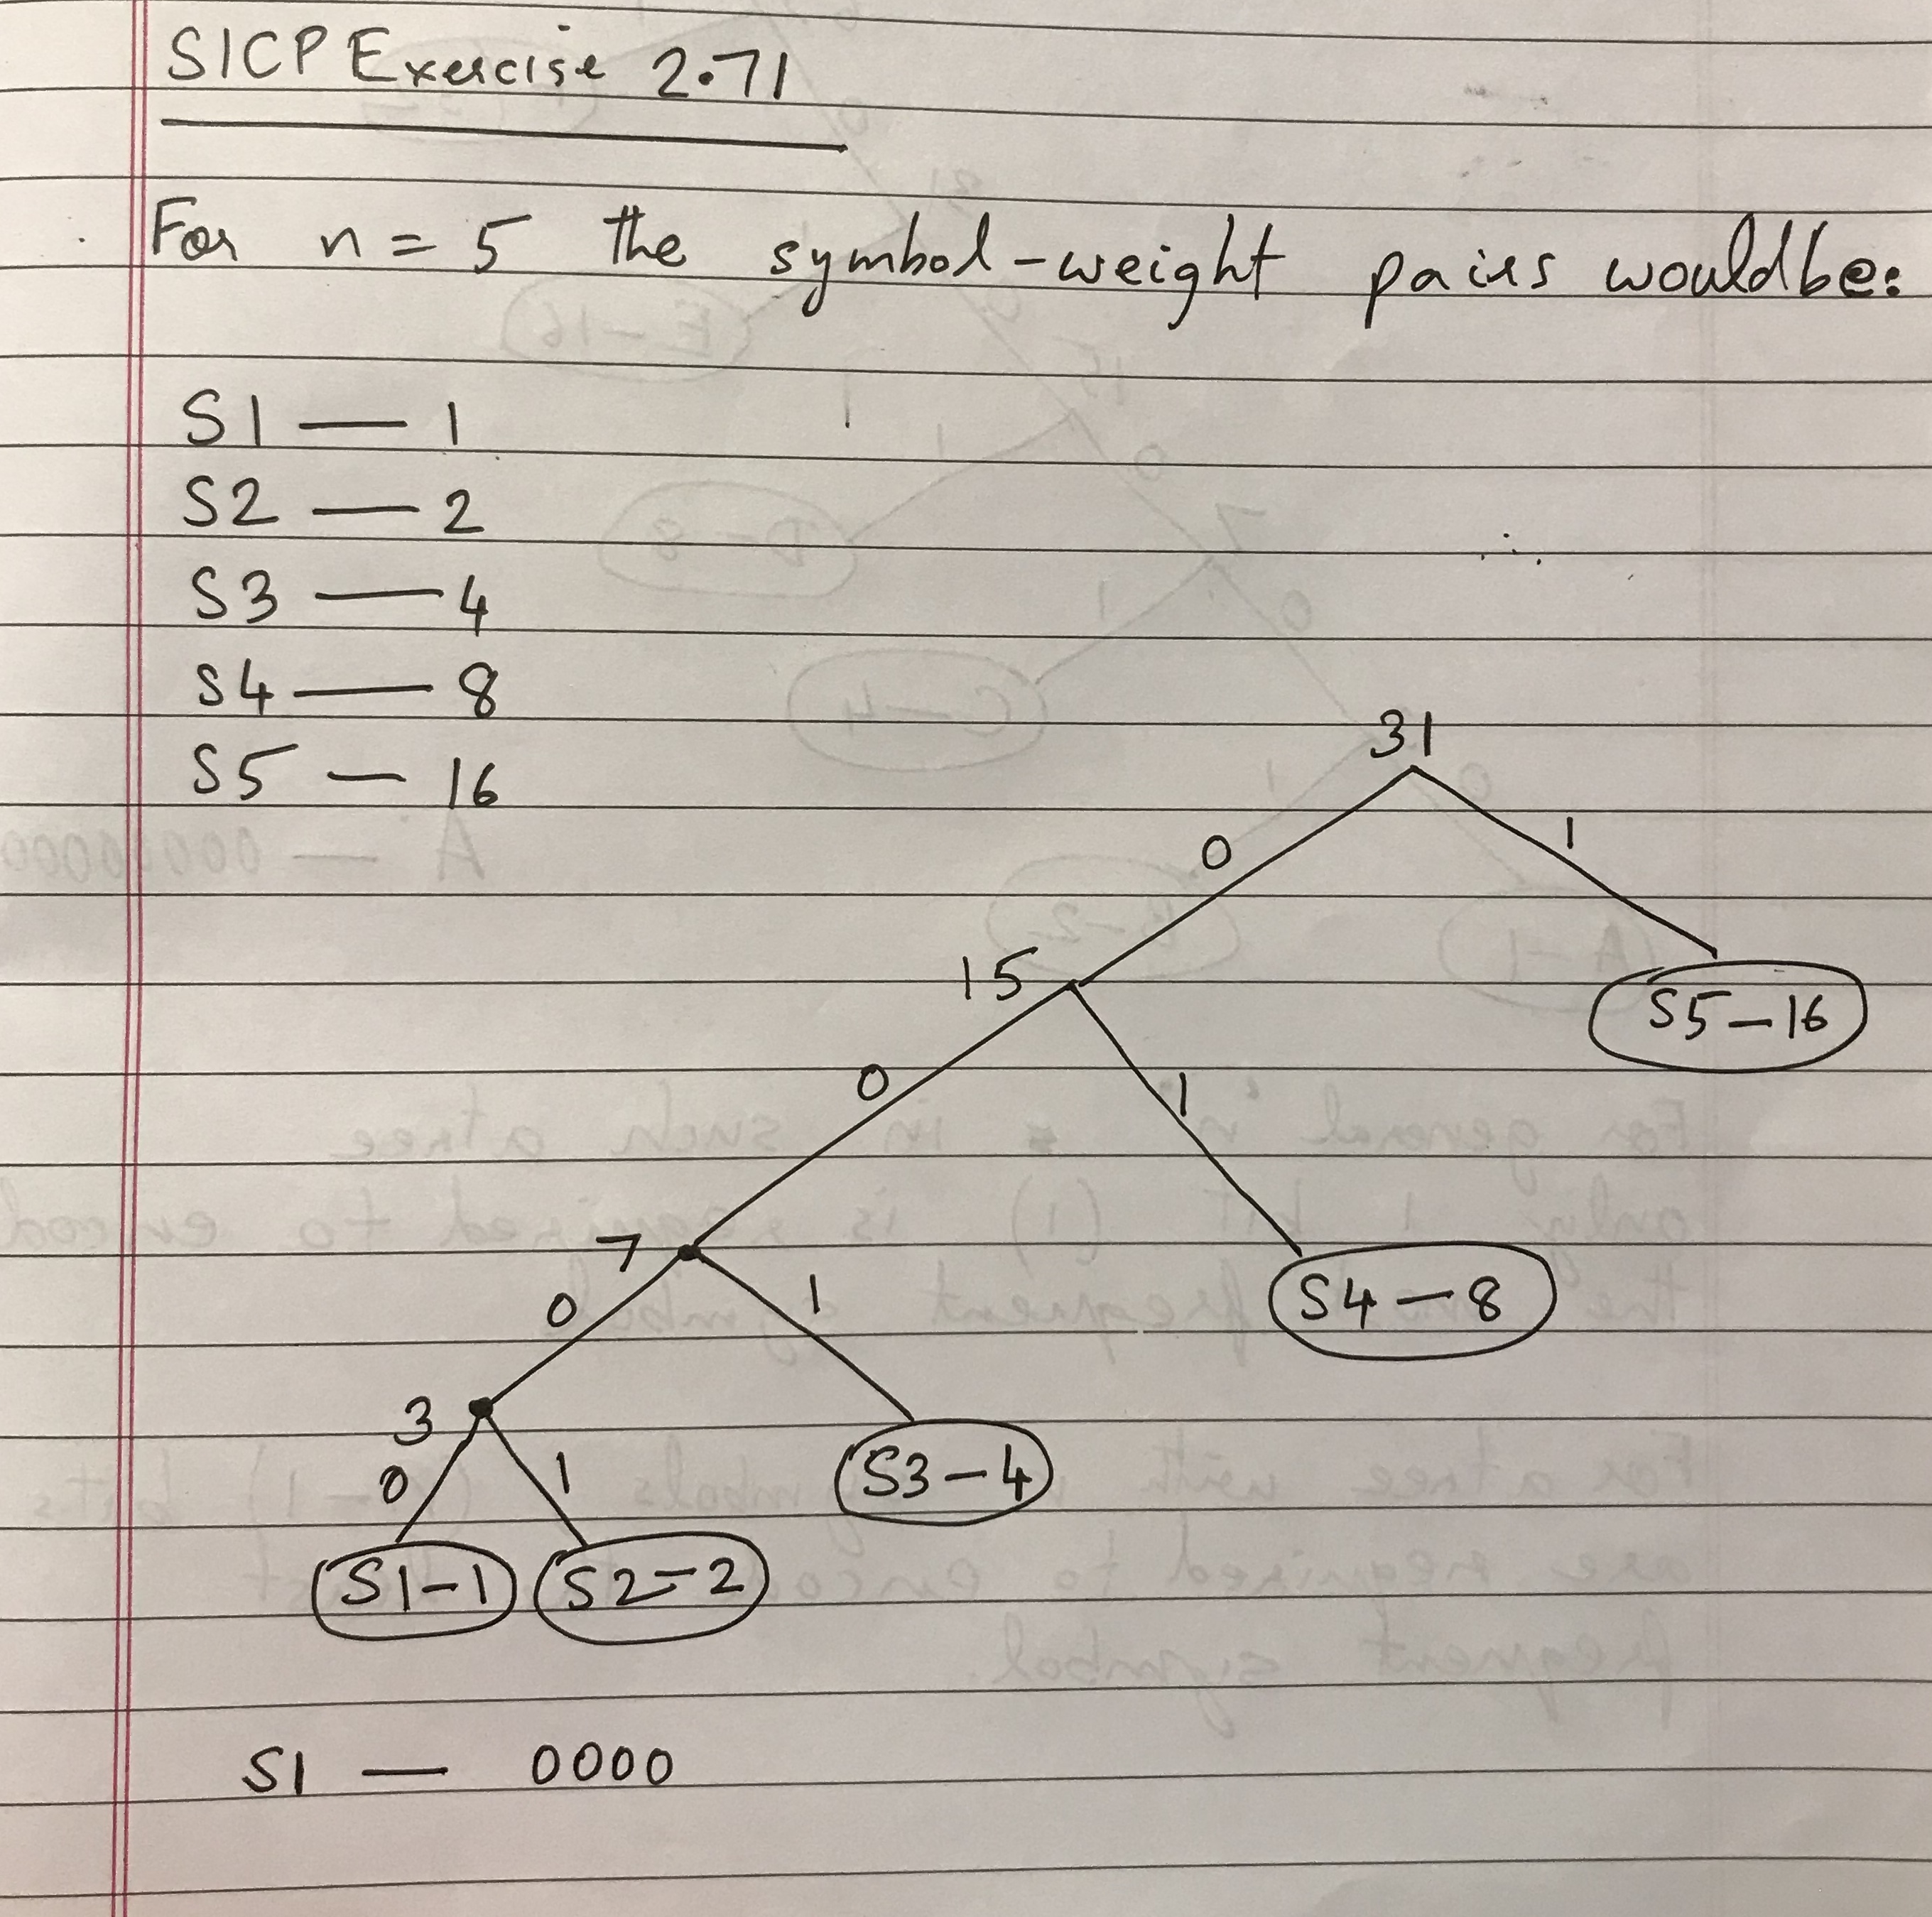 SICP Exercise 2.71
For n = 5 the symbol-weight pairs would be:
S1 — 1
S2 — 2
S3 — 4
S4 — 8
S5 — 16
31
0 1
15
S5 — 16
0 1
7
S4 — 8
0 1
3
S3 — 4
0 1
S1 — 1 S2 — 2
S1 — 0000